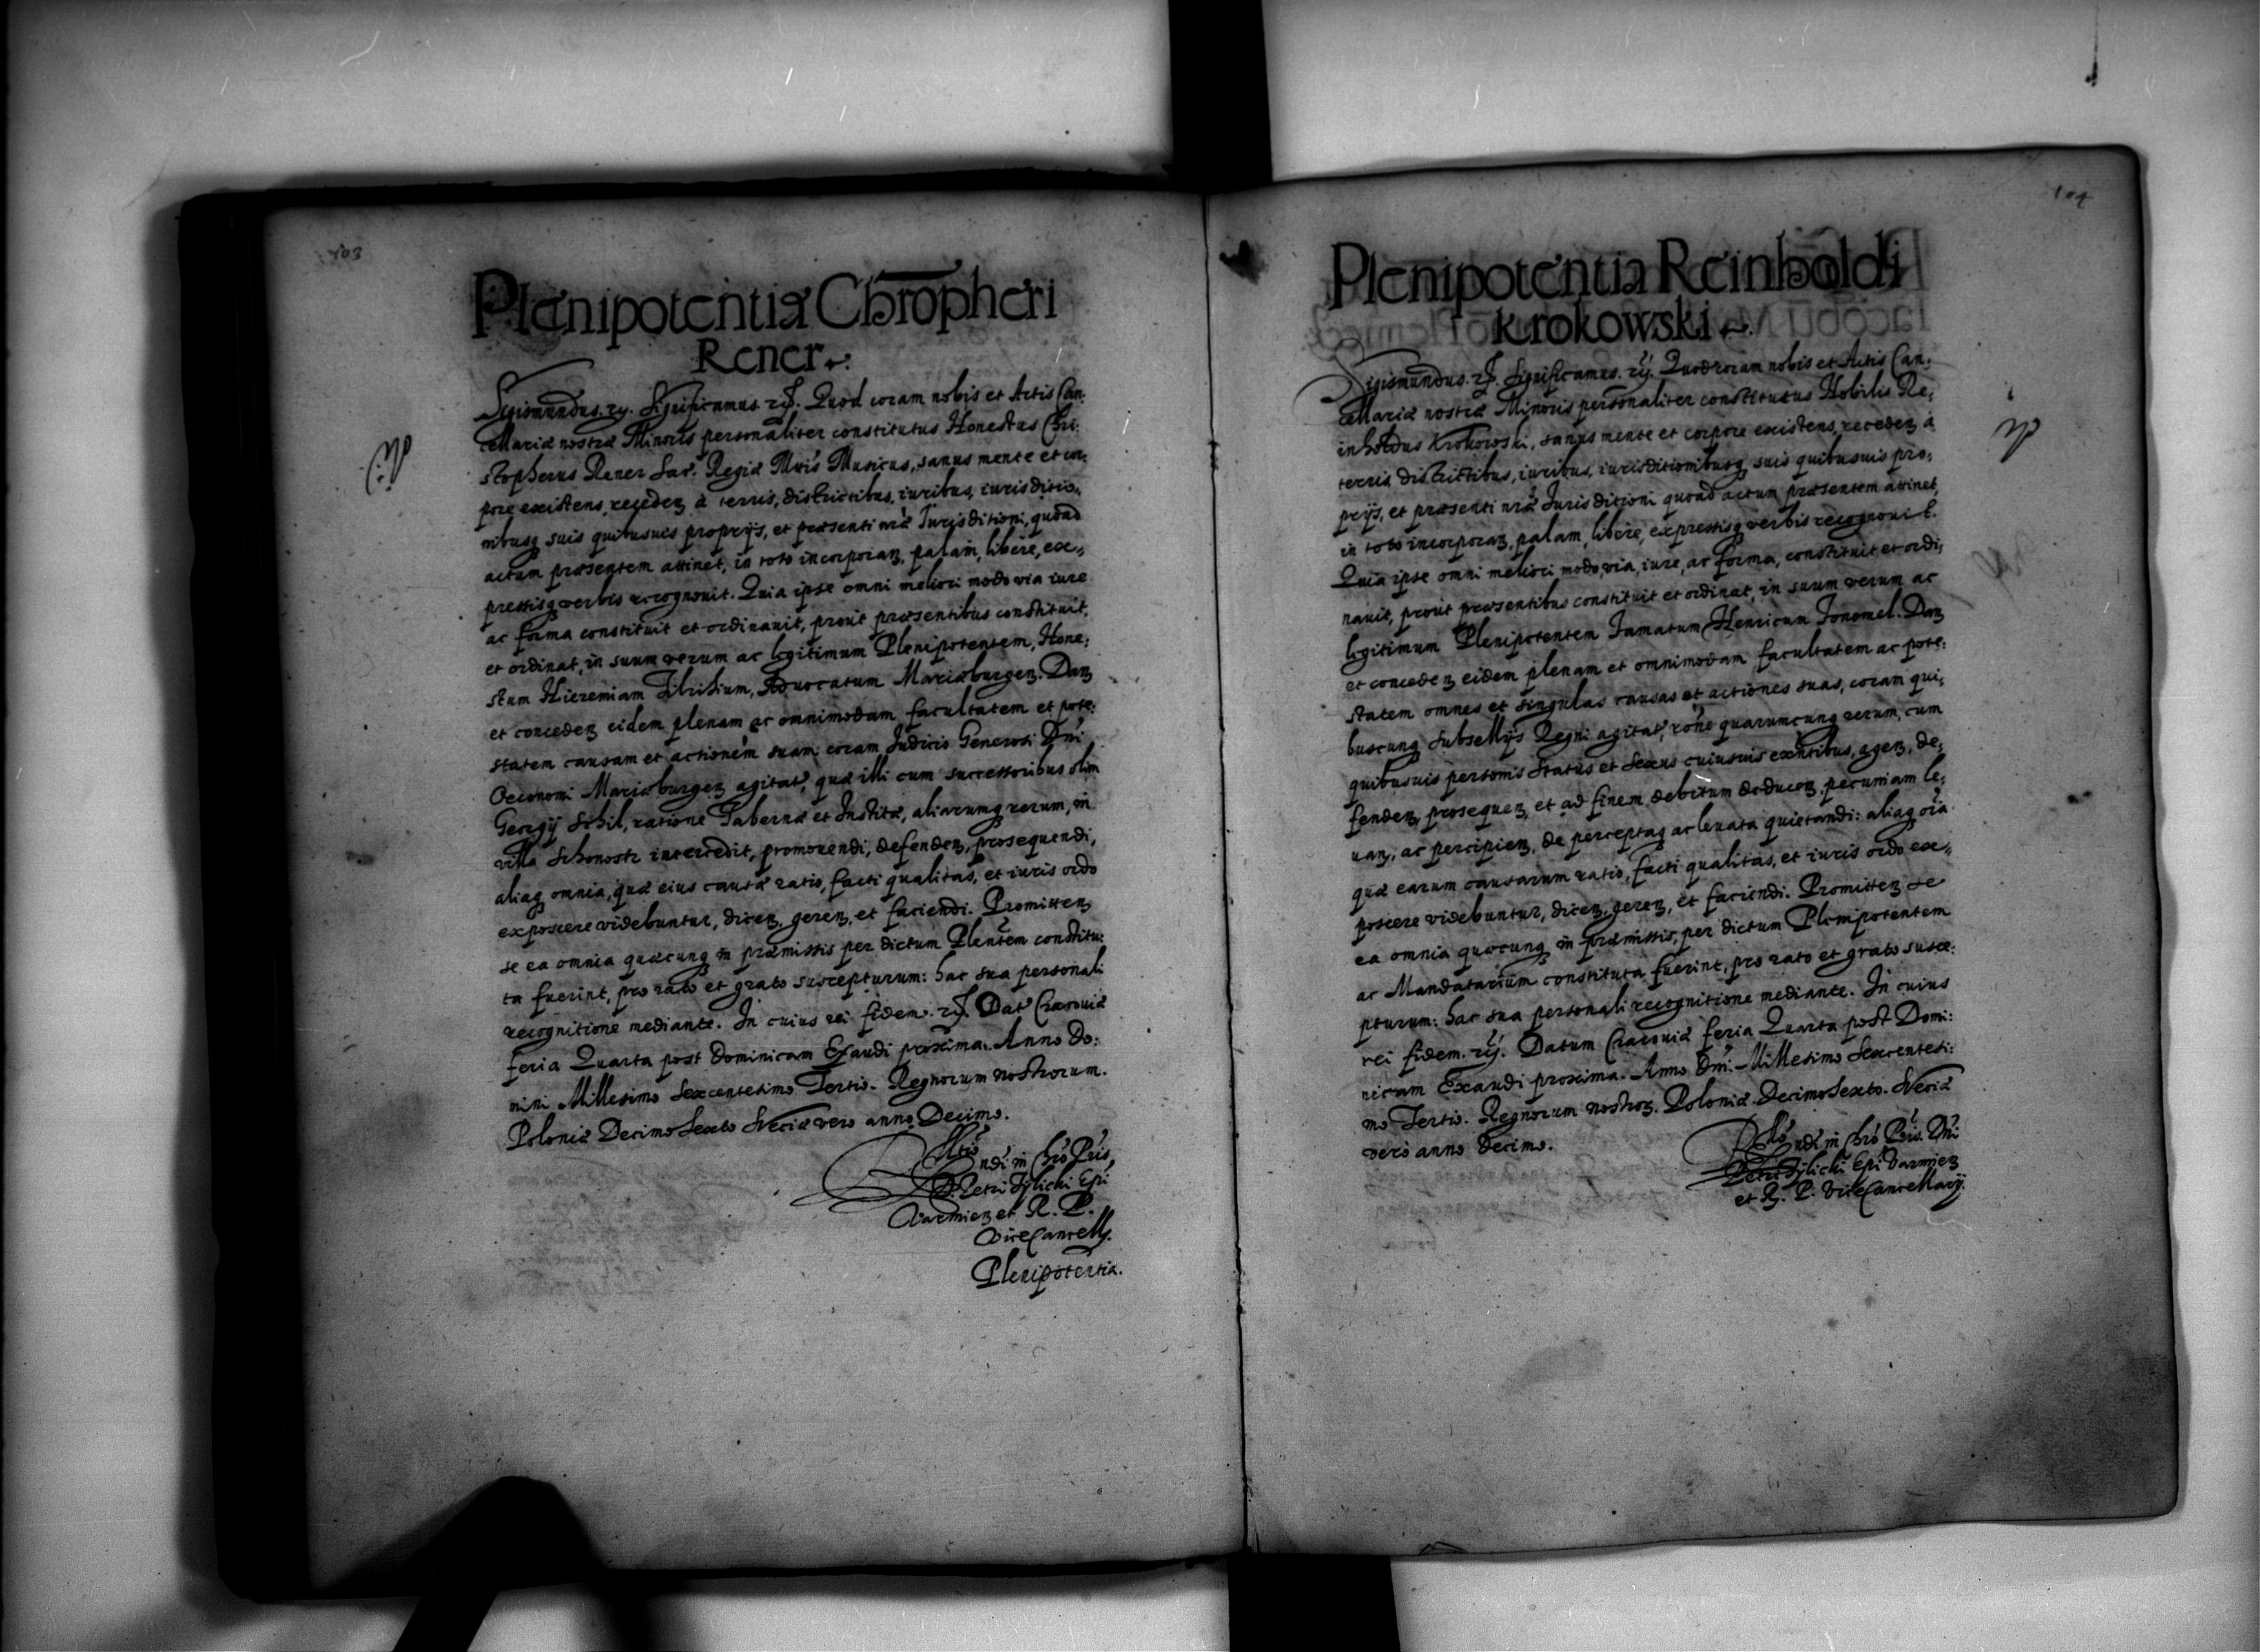 103
Plenipotentia Chrõpheri
Rener
Sigismundus. rz. Significamus. rz. Quod coram nobis et Actis Can:
cellariæ nostræ Minoris personaliter constitutus Honestus Chri:
stopherus Rener Sac. Regiæ Mtis Musicus, sanus mente et cor:
pore existens, receden à terris, districtibus, iuribus, iurisditio:
nibusq suis quibusuis proprijs, et præsenti nræ Jurisditioni, quoad
actum præsentem attinet, in toto incorporan, palam, libere, ex:
pressisq verbis recognouit. Quia ipse omni meliori modo via iure
ac forma constituit et ordinauit, prout præsentibus constituit,
et ordinat, in suum verum ac legitimum Plenipotentem, Hone:
stum Hieremiam Advocatum Mariæburgen. Dan
et conceden eidem plenam ac omnimodam facultatem et pote:
statem causam et actionem suam coram Judicio Generosi Dni
Oeconomi Mariæburgen agitat, quæ illi cum successoribus olim
Georgij Schil, ratione Tabernæ et Institæ, aliarumq rerum, in
villa Schonostr intercedit, promouendi, defenden, prosequendi,
aliaq omnia, quæ eius causæ ratio, facti qualitas, et iuris ordo
exposcere videbuntur, dicen, geren, et faciendi. Promitten
se ea omnia quæcunq in præmissis per dictum Plentem constitu:
ta fuerint, pro rato et grato suscepturum: hac sua personali
recognitione mediante. In cuius rei fidem. rz. Dat Cracouiæ
feria Quarta post Dominicam Exaudi proxima. Anno Do:
mini Millesimo Sexcentesimo Tertio. Regnorum nostrorum.
Poloniæ Decimo Sexto Sveciæ vero anno Decimo.
Rltio
ndi in Chro Pris,
D. Petri Tylicki Epi
Varmien et R. P.
ViceCancellj.
Plenipotentia.
104
Plenipotentia Reinholdi
Krokowski
Sigismundus. rz. Significamus. rz. Quod coram nobis et Actis Can:
cellariæ nostræ Minoris personaliter constitutus Nobilis Re:
inholdus Krokowski, sanus mente et corpore existens, receden à
terris districtibus, iuribus, iurisditionibusq suis quibusuis pro:
prijs, et præsenti nræ Jurisditioni quoad actum præsentem attinet,
in toto incorporan, palam, libere, expressisq verbis recognouit.
Quia ipse omni meliori modo, via, iure, ac forma, constituit et ordi:
nauit, prout præsentibus constituit et ordinat, in suum verum ac
legitimum Plenipotentem Famatum Henricum Donomel. Dan
et conceden eidem plenam et omnimodam facultatem ac pote:
statem omnes et singulas causas et actiones suas, coram qui:
buscunq Subsellijs Regni agitat, rone quarumcunq rerum, cum
quibusuis personis status et sexus cuiusuis exntibus, agen, de:
fenden, prosequen, et ad finem debitum deducen, pecuniam le:
uan, ac percipien, de perceptaq ac leuata quietandi: aliaq oia
quæ earum causarum ratio, facti qualitas, et iuris ordo ex:
poscere videbuntur, dicen, geren, et faciendi. Promitten se
ea omnia quæcunq in præmissis, per dictum Plenipotentem
ac Mandatarium constituta fuerint, pro rato et grato susce:
pturum: hac sua personali recognitione mediante. In cuius
rei fidem. rz. Datum Cracouiæ feria Quarta post Domi:
nicam Exaudi proxima. Anno Dni. Millesimo Sexcentesi:
mo Tertio. Regnorum nostror. Poloniæ Decimo Sexto. Sveciæ
verò anno Decimo.
Rltio
ndi in Chro Pris. Dni
Petri Tylicki Epi Varmien
et R. P. ViceCancellarij.